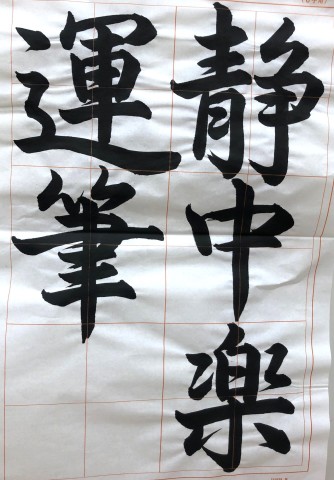 静中楽
運筆